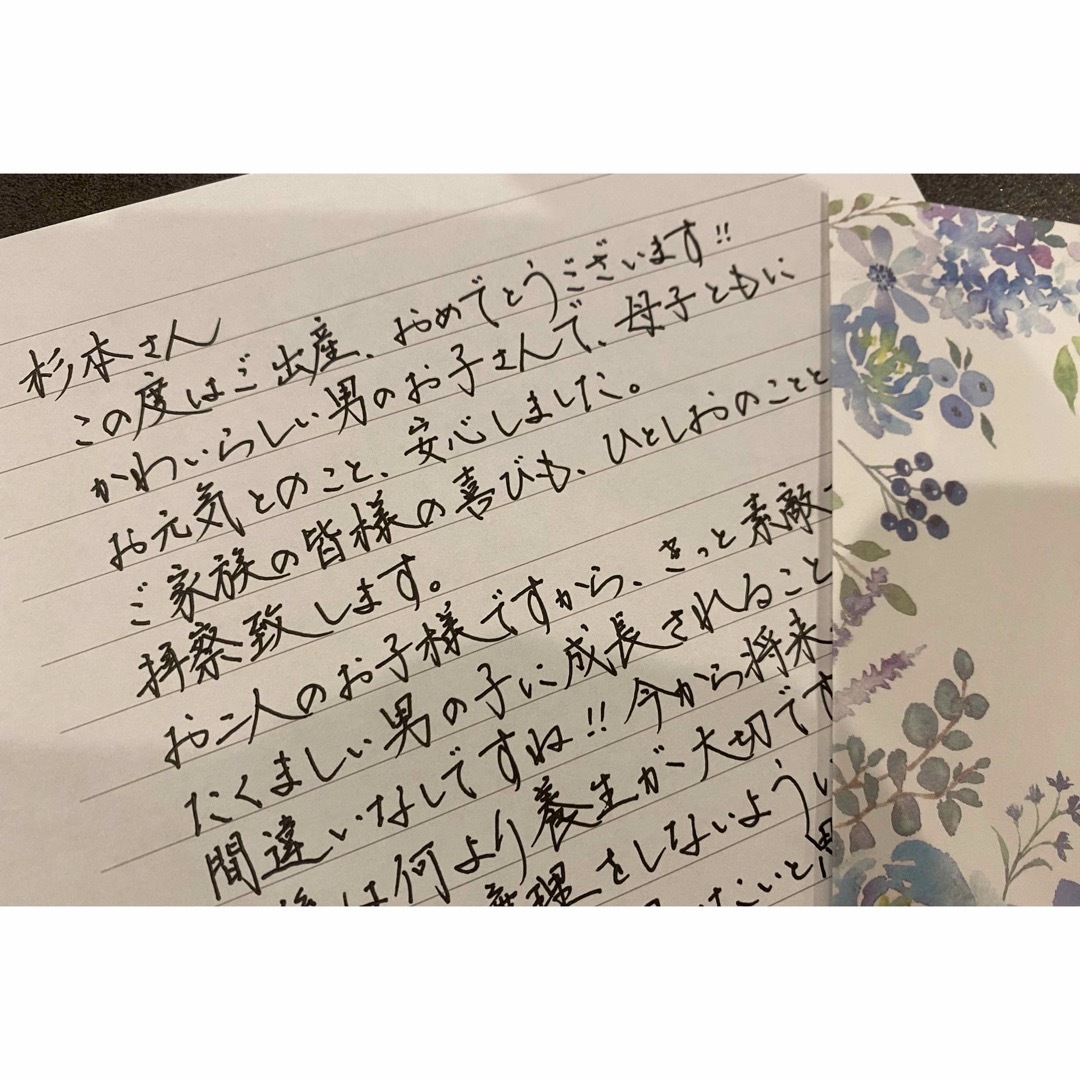 杉本さん
この度はご出産、おめでとうございます!!
かわいらしい男のお子さんで、母子ともに
お元気とのこと、安心しました。
ご家族の皆様の喜びも、ひとしおのことと
拝察致します。
お二人のお子様ですから、きっと素敵
たくましい男の子に成長されること
間違いなしですね!!今から将来
は何より養生が大切です
無理をしないよう
たいと思